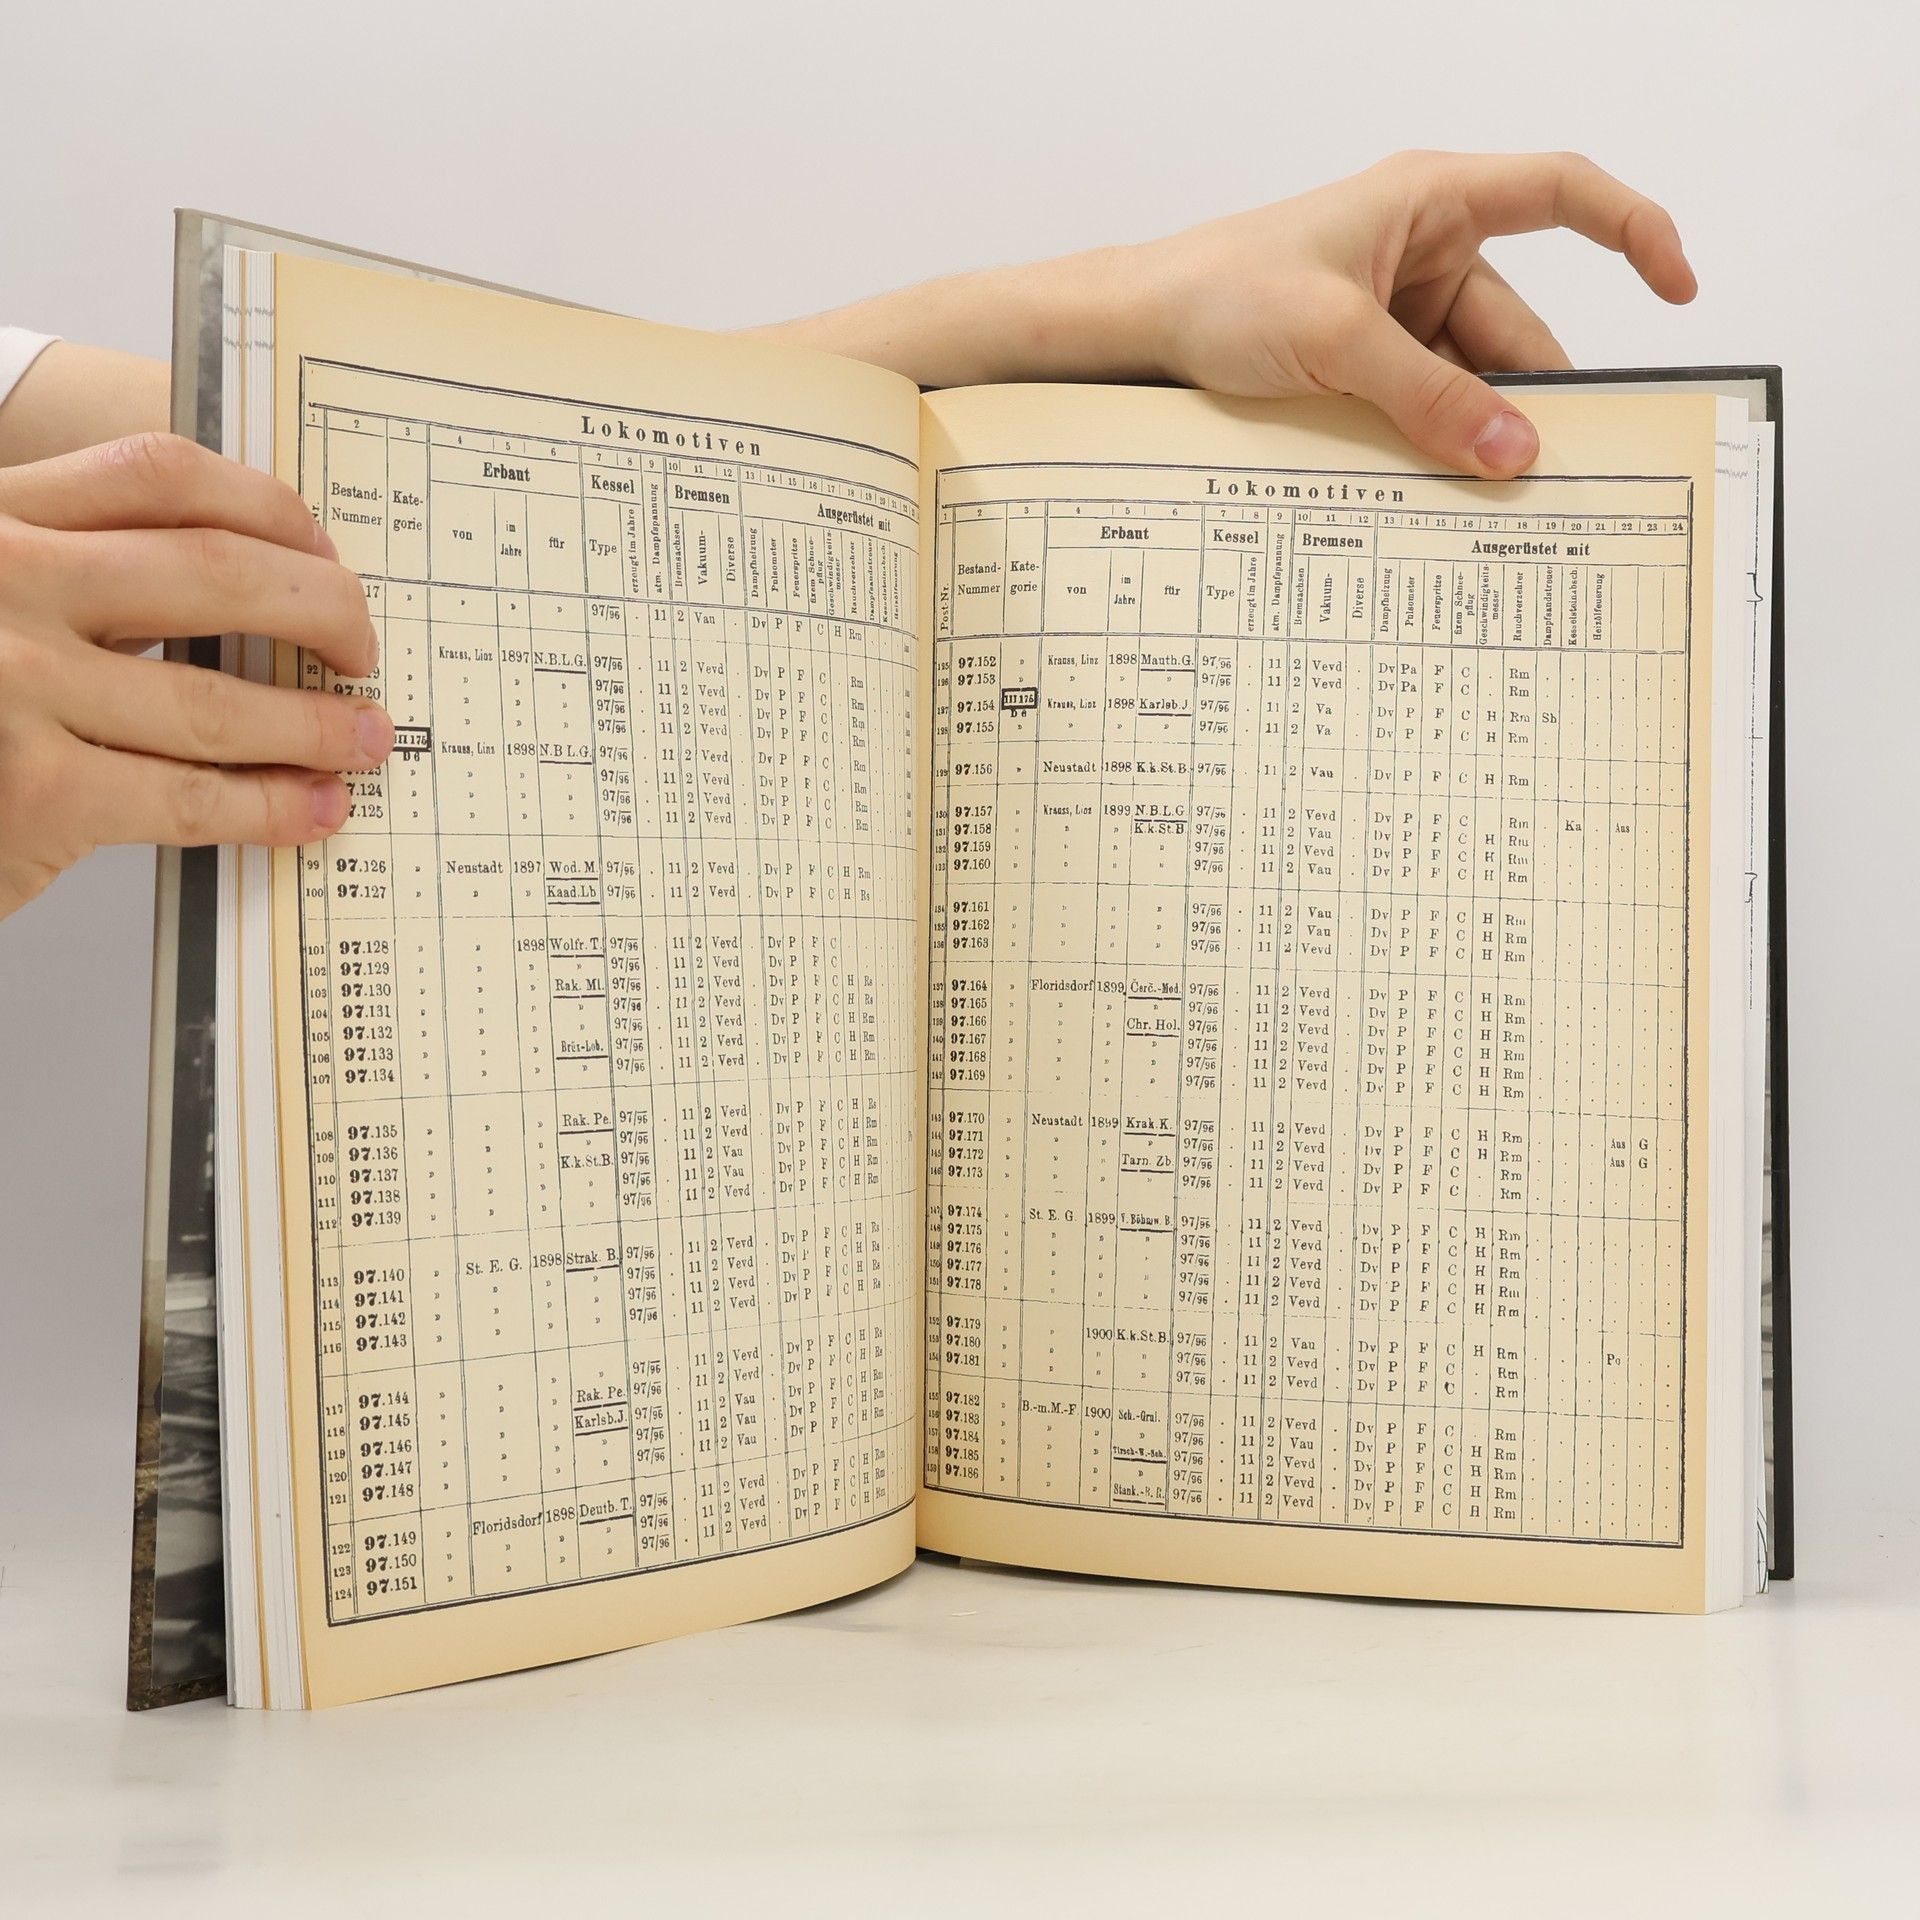 Lokomotiven
1 2 3 4 5 6 7 8 9 10 11 12 13 14 15 16 17 18 19 20 21 22
Bestand-Nummer Kate-gorie Erbaut Kessel atm. Dampfspannung Bremsen Ausgerüstet mit
von im Jahre für Type erzeugt im Jahre Bremsachsen Vakuum- Diverse Dampfheizung Pulsometer Feuerspritze fixem Schnee-pflug Geschwindigkeits-messer Rauchverzehrer Dampfsandstreuer Kesselsteinabsch. Heizölfeuerung
17 » » » » 97/96 . 11 2 Van . Dv P F C H Rm
92 » Krauss, Linz 1897 N.B.L.G. 97/96 . 11 2 Vevd . Dv P F C . Rm
97.120 » » » » 97/96 . 11 2 Vevd . Dv P F C . Rm
» » » » 97/96 . 11 2 Vevd . Dv P F C . Rm
» » » » 97/96 . 11 2 Vevd . Dv P F C . Rm
III 175
b 6 Krauss, Linz 1898 N.B.L.G. 97/96 . 11 2 Vevd . Dv P F C . Rm
» » » » 97/96 . 11 2 Vevd . Dv P F C . Rm
7.124 » » » » 97/96 . 11 2 Vevd . Dv P F C . Rm
7.125 » » » » 97/96 . 11 2 Vevd . Dv P F C . Rm
99 97.126 » Neustadt 1897 Wod. M. 97/96 . 11 2 Vevd . Dv P F C H Rm
100 97.127 » » » Kaad.Lb 97/96 . 11 2 Vevd . Dv P F C H Rs
101 97.128 » » 1898 Wolfr. T. 97/96 . 11 2 Vevd . Dv P F C
102 97.129 » » » » 97/96 . 11 2 Vevd . Dv P F C
103 97.130 » » » Rak. Ml. 97/96 . 11 2 Vevd . Dv P F C H Rs
104 97.131 » » » » 97/96 . 11 2 Vevd . Dv P F C H Rs
105 97.132 » » » » 97/96 . 11 2 Vevd . Dv P F C H Rm
106 97.133 » » » Brüx-Lob. 97/96 . 11 2 Vevd . Dv P F C H Rm
107 97.134 » » » » 97/96 . 11 2 Vevd . Dv P F C H Rm
108 97.135 » » » Rak. Pe. 97/96 . 11 2 Vevd . Dv P F C H Rs
109 97.136 » » » » 97/96 . 11 2 Vevd . Dv P F C H Rm
110 97.137 » » » K.k.St.B. 97/96 . 11 2 Vau . Dv P F C H Rm
111 97.138 » » » » 97/96 . 11 2 Vau . Dv P F C H Rm
112 97.139 » » » » 97/96 . 11 2 Vevd . Dv P F C H Rm
113 97.140 » St. E. G. 1898 Strak. B. 97/96 . 11 2 Vevd . Dv P F C H Rs
114 97.141 » » » » 97/96 . 11 2 Vevd . Dv P F C H Rs
115 97.142 » » » » 97/96 . 11 2 Vevd . Dv P F C H Rs
116 97.143 » » » » 97/96 . 11 2 Vevd . Dv P F C H Rs
117 97.144 » » » » 97/96 . 11 2 Vevd . Dv P F C H Rs
118 97.145 » » » Rak. Pe. 97/96 . 11 2 Vevd . Dv P F C H Rs
119 97.146 » » » Karlsb.J. 97/96 . 11 2 Vau . Dv P F C H Rm
120 97.147 » » » » 97/96 . 11 2 Vau . Dv P F C H Rm
121 97.148 » » » » 97/96 . 11 2 Vau . Dv P F C H Rm
122 97.149 » Floridsdorf 1898 Deutb. T. 97/96 . 11 2 Vevd . Dv P F C H Rm
123 97.150 » » » » 97/96 . 11 2 Vevd . Dv P F C H Rm
124 97.151 » » » » 97/96 . 11 2 Vevd . Dv P F C H Rm
Lokomotiven
1 2 3 4 5 6 7 8 9 10 11 12 13 14 15 16 17 18 19 20 21 22 23 24
Post-Nr. Bestand-Nummer Kate-gorie Erbaut Kessel atm. Dampfspannung Bremsen Ausgerüstet mit
von im Jahre für Type erzeugt im Jahre Bremsachsen Vakuum- Diverse Dampfheizung Pulsometer Feuerspritze fixem Schnee-pflug Geschwindigkeits-messer Rauchverzehrer Dampfsandstreuer Kesselsteinabsch. Heizölfeuerung
97.152 » Krauss, Linz 1898 Mauth.G. 97/96 . 11 2 Vevd . Dv Pa F C . Rm
97.153 » » » » 97/96 . 11 2 Vevd . Dv Pa F C . Rm
127 97.154 III 175 b 6 Krauss, Linz 1898 Karlsb.J 97/96 . 11 2 Va . Dv P F C H Rm Sh
128 97.155 » » » » 97/96 . 11 2 Va . Dv P F C H Rm
129 97.156 » Neustadt 1898 K.k.St.B. 97/96 . 11 2 Vau . Dv P F C H Rm
130 97.157 » Krauss, Linz 1899 N.B.L.G. 97/96 . 11 2 Vevd . Dv P F C Rm . Ka . Aus
131 97.158 » » » K.k.St.B 97/96 . 11 2 Vau . Dv P F C H Rm
132 97.159 » » » » 97/96 . 11 2 Vevd . Dv P F C H Rm
133 97.160 » » » » 97/96 . 11 2 Vau . Dv P F C H Rm
134 97.161 » » » » 97/96 . 11 2 Vau . Dv P F C H Rm
135 97.162 » » » » 97/96 . 11 2 Vau . Dv P F C H Rm
136 97.163 » » » » 97/96 . 11 2 Vevd . Dv P F C H Rm
137 97.164 » Floridsdorf 1899 Čerč.-Mod. 97/96 . 11 2 Vevd . Dv P F C H Rm
138 97.165 » » » » 97/96 . 11 2 Vevd . Dv P F C H Rm
139 97.166 » » » Chr. Hol. 97/96 . 11 2 Vevd . Dv P F C H Rm
140 97.167 » » » » 97/96 . 11 2 Vevd . Dv P F C H Rm
141 97.168 » » » » 97/96 . 11 2 Vevd . Dv P F C H Rm
142 97.169 » » » » 97/96 . 11 2 Vevd . Dv P F C H Rm
143 97.170 » Neustadt 1899 Krak.K. 97/96 . 11 2 Vevd . Dv P F C H Rm . . . Aus G
144 97.171 » » » » 97/96 . 11 2 Vevd . Dv P F C H Rm . . . Aus G
145 97.172 » » » Tarn. Zb. 97/96 . 11 2 Vevd . Dv P F C . Rm
146 97.173 » » » » 97/96 . 11 2 Vevd . Dv P F C . Rm
147 97.174 » St. E. G. 1899 V. Böhmw. B. 97/96 . 11 2 Vevd . Dv P F C H Rm
148 97.175 » » » » 97/96 . 11 2 Vevd . Dv P F C H Rm
149 97.176 » » » » 97/96 . 11 2 Vevd . Dv P F C H Rm
150 97.177 » » » » 97/96 . 11 2 Vevd . Dv P F C H Rm
151 97.178 » » » » 97/96 . 11 2 Vevd . Dv P F C H Rm
152 97.179 » » 1900 K.k.St.B. 97/96 . 11 2 Vau . Dv P F C H Rm
153 97.180 » » » » 97/96 . 11 2 Vevd . Dv P F C . Rm . . . Po
154 97.181 » » » » 97/96 . 11 2 Vevd . Dv P F C . Rm
155 97.182 » B.-m.M.-F. 1900 Sch.-Gral. 97/96 . 11 2 Vevd . Dv P F C . Rm
156 97.183 » » » » 97/96 . 11 2 Vau . Dv P F C H Rm
157 97.184 » » » Tirsch-W.-Sch. 97/96 . 11 2 Vevd . Dv P F C H Rm
158 97.185 » » » » 97/96 . 11 2 Vevd . Dv P F C H Rm
159 97.186 » » » Stank.-R. R. 97/96 . 11 2 Vevd . Dv P F C H Rm